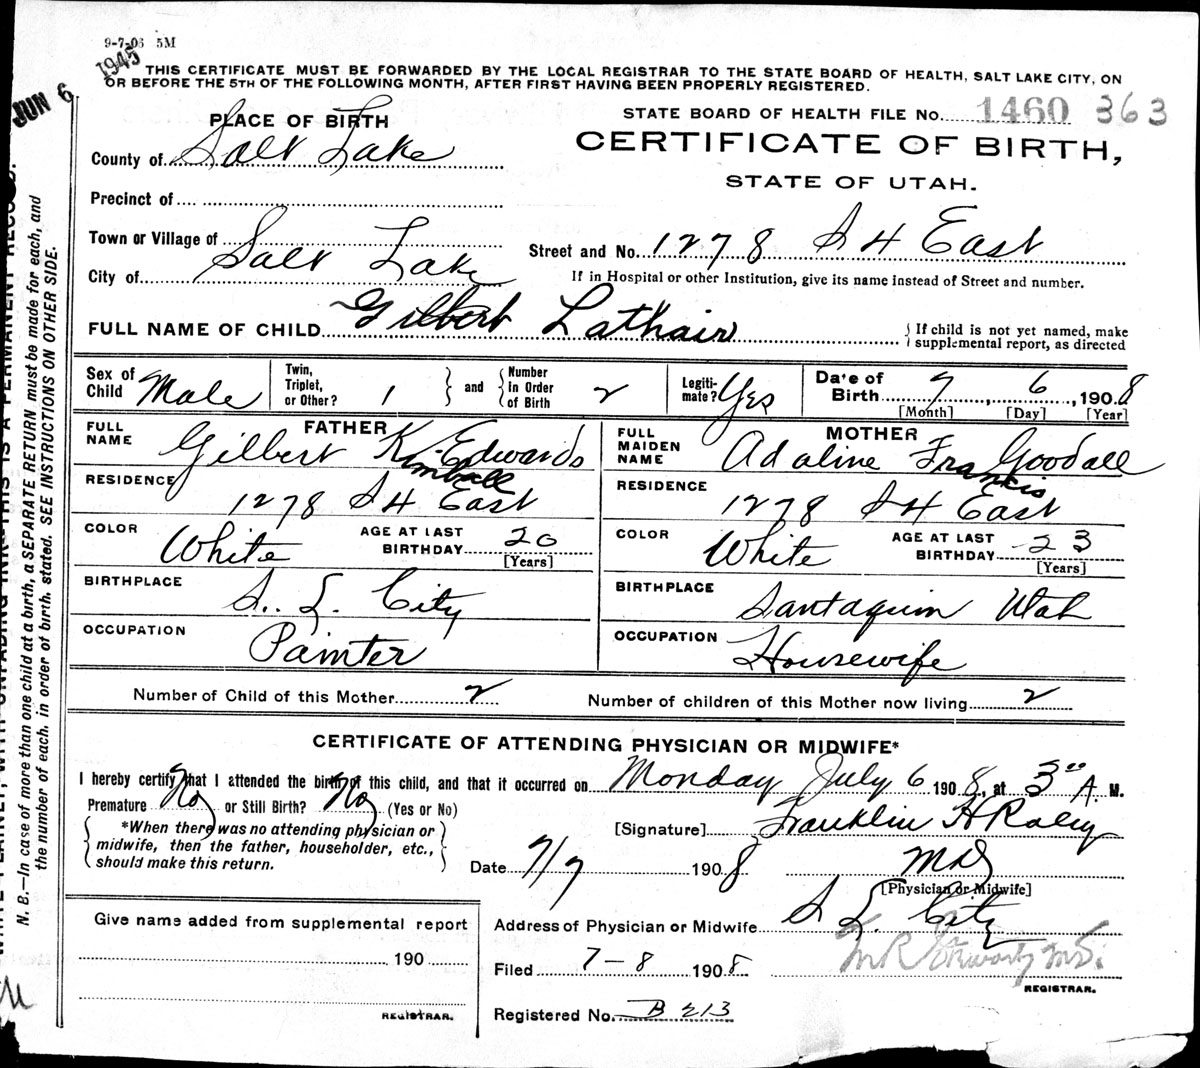 9-7-08 5M
JUN 6 1945
THIS CERTIFICATE MUST BE FORWARDED BY THE LOCAL REGISTRAR TO THE STATE BOARD OF HEALTH, SALT LAKE CITY, ON
OR BEFORE THE 5TH OF THE FOLLOWING MONTH, AFTER FIRST HAVING BEEN PROPERLY REGISTERED.
STATE BOARD OF HEALTH FILE No. 1460 363
PLACE OF BIRTH
CERTIFICATE OF BIRTH,
STATE OF UTAH.
County of Salt Lake
Precinct of
Town or Village of
City of Salt Lake
Street and No. 1278 S 4 East
If in Hospital or other Institution, give its name instead of Street and number.
FULL NAME OF CHILD Gilbert Lathair
{ If child is not yet named, make
supplemental report, as directed
Sex of Child Male
Twin, Triplet, or Other? 1 } and { Number In Order of Birth 2
Legitimate? Yes
Date of Birth 7, 6, 1908
[Month] [Day] [Year]
FATHER
FULL NAME Gilbert Kimball Edwards
RESIDENCE 1278 S 4 East
COLOR White AGE AT LAST BIRTHDAY 20 [Years]
BIRTHPLACE S. L. City
OCCUPATION Painter
MOTHER
FULL MAIDEN NAME Adaline Francis Goodall
RESIDENCE 1278 S 4 East
COLOR White AGE AT LAST BIRTHDAY 23 [Years]
BIRTHPLACE Santaquin Utah
OCCUPATION Housewife
Number of Child of this Mother 2
Number of children of this Mother now living 2
CERTIFICATE OF ATTENDING PHYSICIAN OR MIDWIFE*
I hereby certify that I attended the birth of this child, and that it occurred on Monday July 6 1908, at 3 00 A. M.
Premature No or Still Birth? No (Yes or No)
{ *When there was no attending physician or
midwife, then the father, householder, etc.,
should make this return. }
[Signature] Franklin H Raley
MD
[Physician or Midwife]
Date 7/7 1908
Address of Physician or Midwife S L City
Filed 7-8 1908
REGISTRAR.
Registered No. B 213
Give name added from supplemental report
190
REGISTRAR.
N. B.—In case of more than one child at a birth, a SEPARATE RETURN must be made for each, and
the number of each, in order of birth, stated. SEE INSTRUCTIONS ON OTHER SIDE.